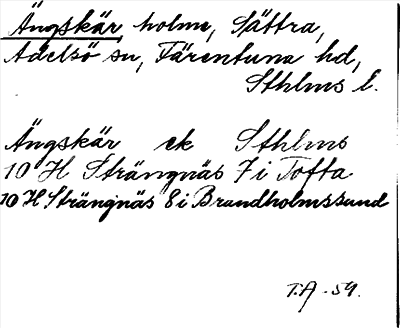 Ängskär holme, Sättra,
Adelsö sn, Färentuna hd,
Sthlms l.
Ängskär ek Sthlms
10 H Strängnäs 7 i Tofta
10 H Strängnäs 8 i Brandholmssund
T.A. -59.